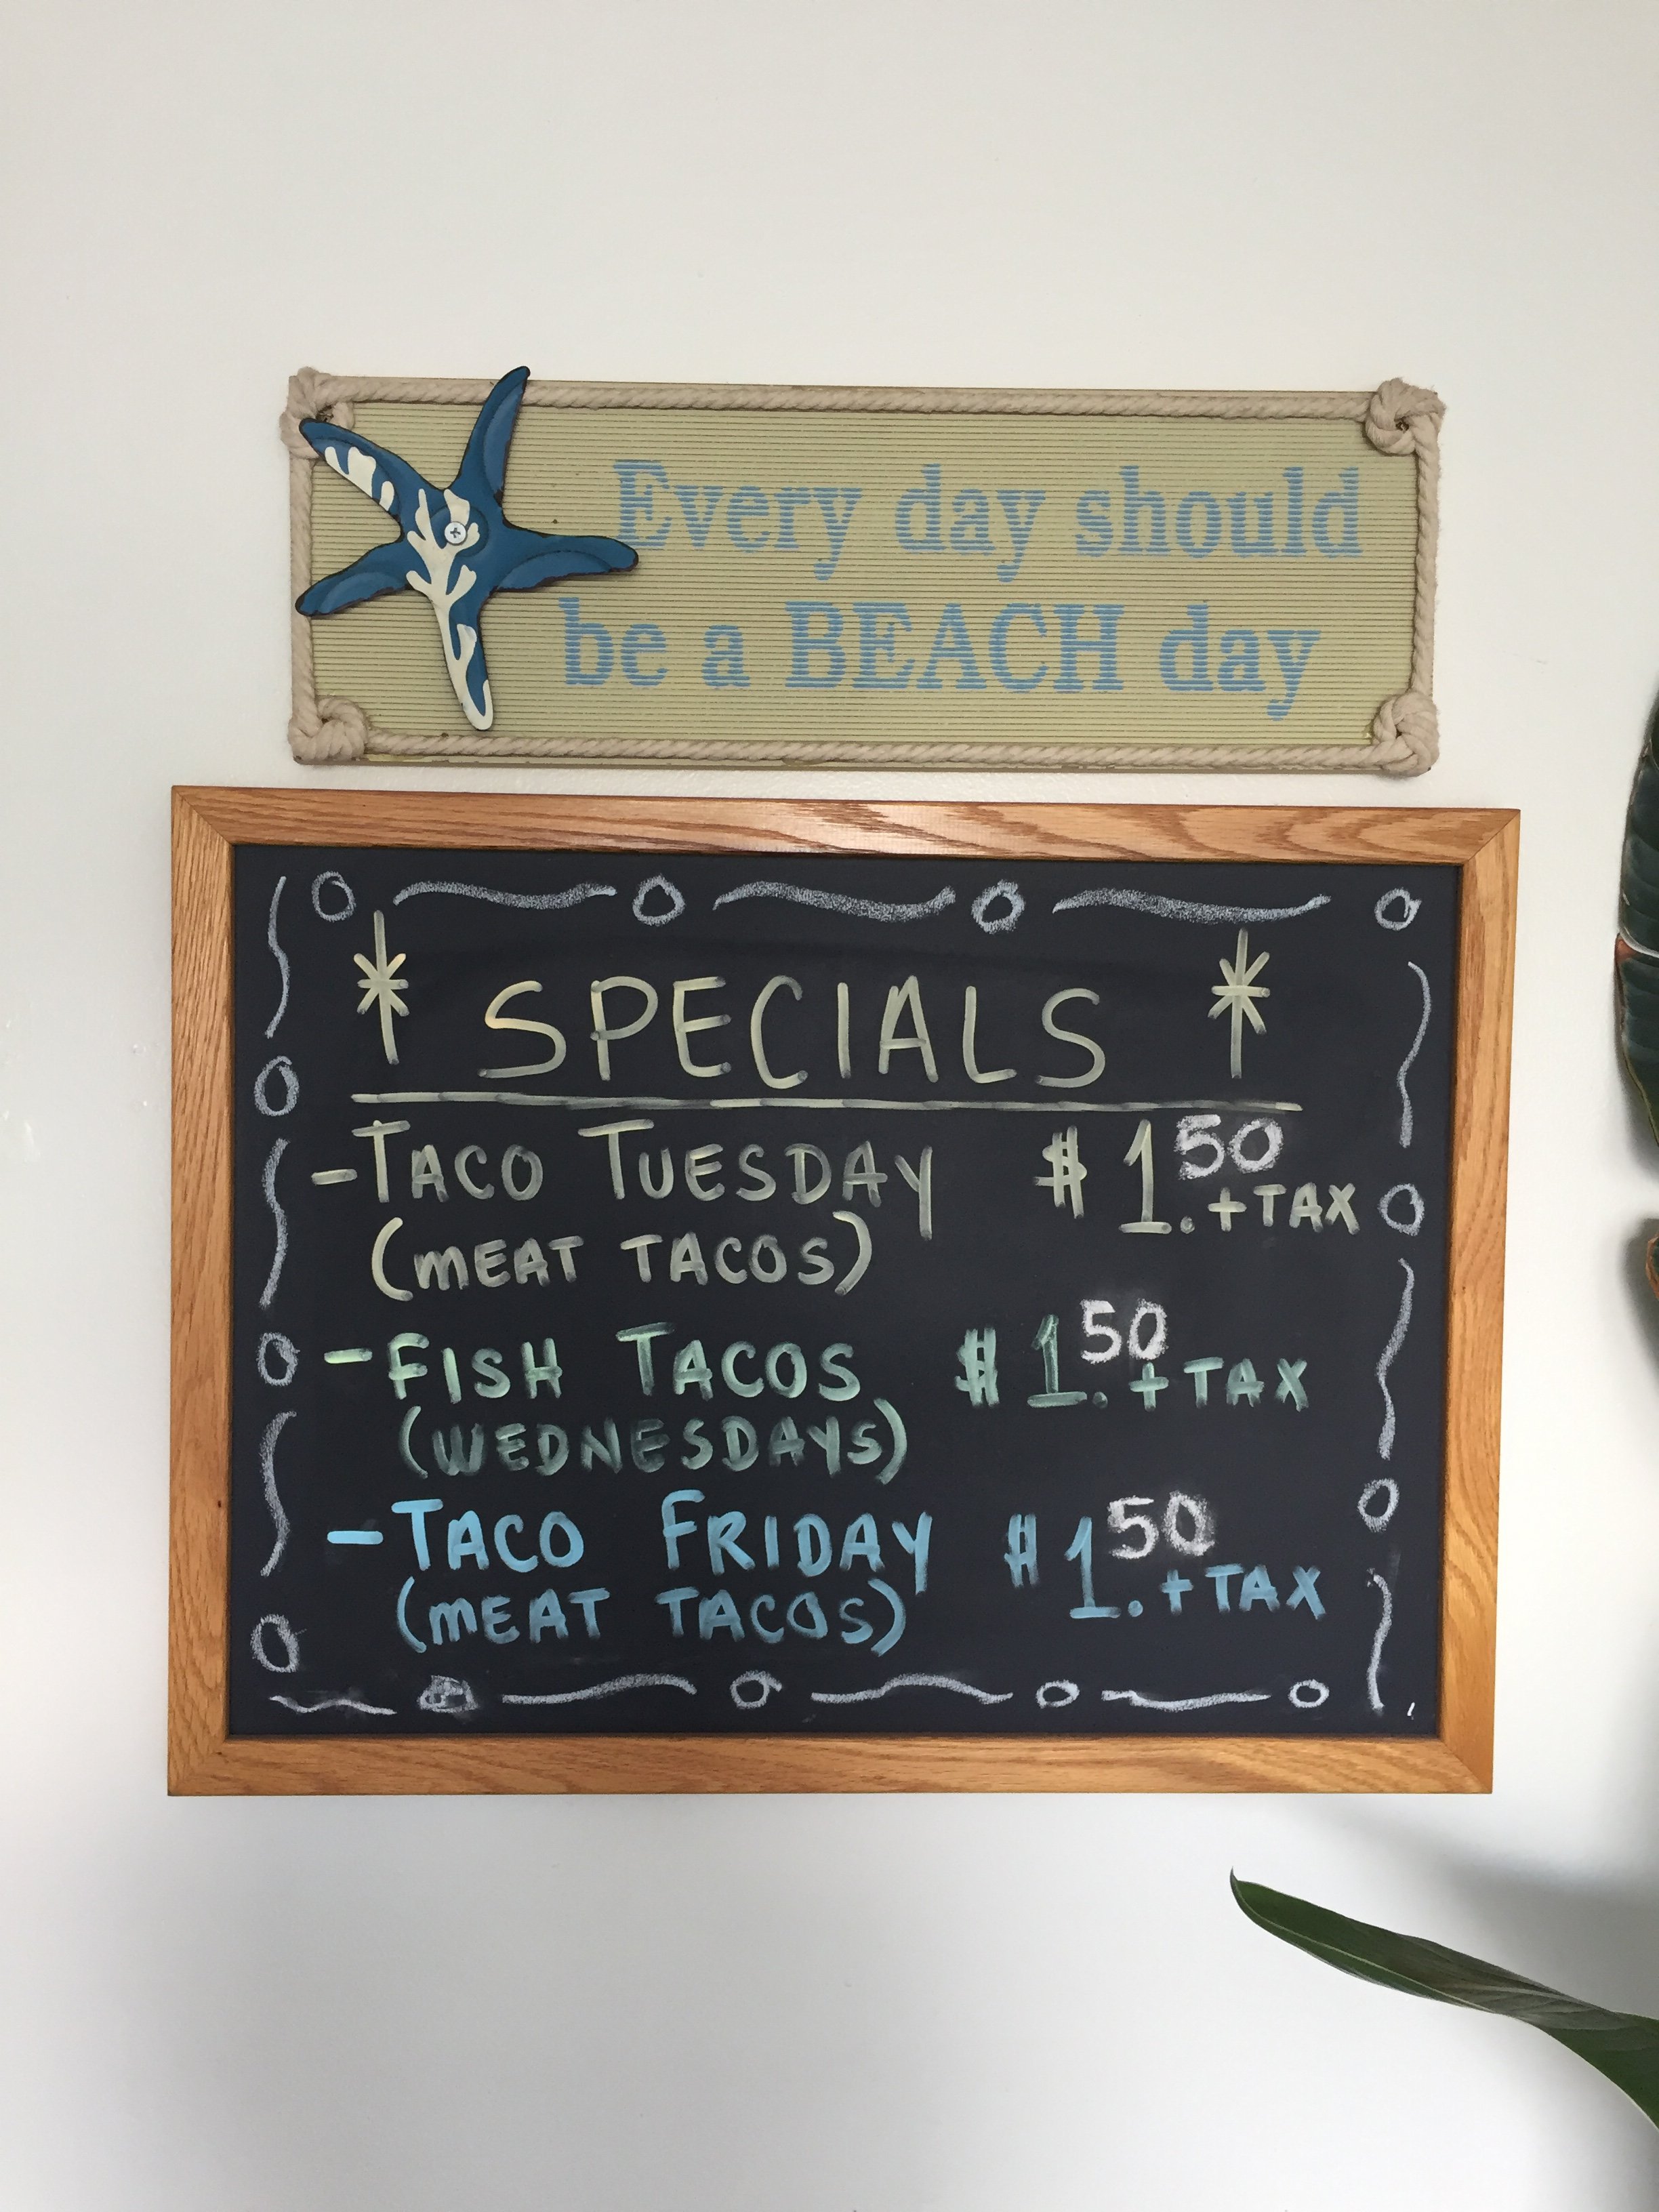 Every day should
be a BEACH day
* SPECIALS *
- TACO TUESDAY $1.50 + TAX
(MEAT TACOS)
- FISH TACOS $1.50 + TAX
(WEDNESDAYS)
- TACO FRIDAY $1.50 + TAX
(MEAT TACOS)